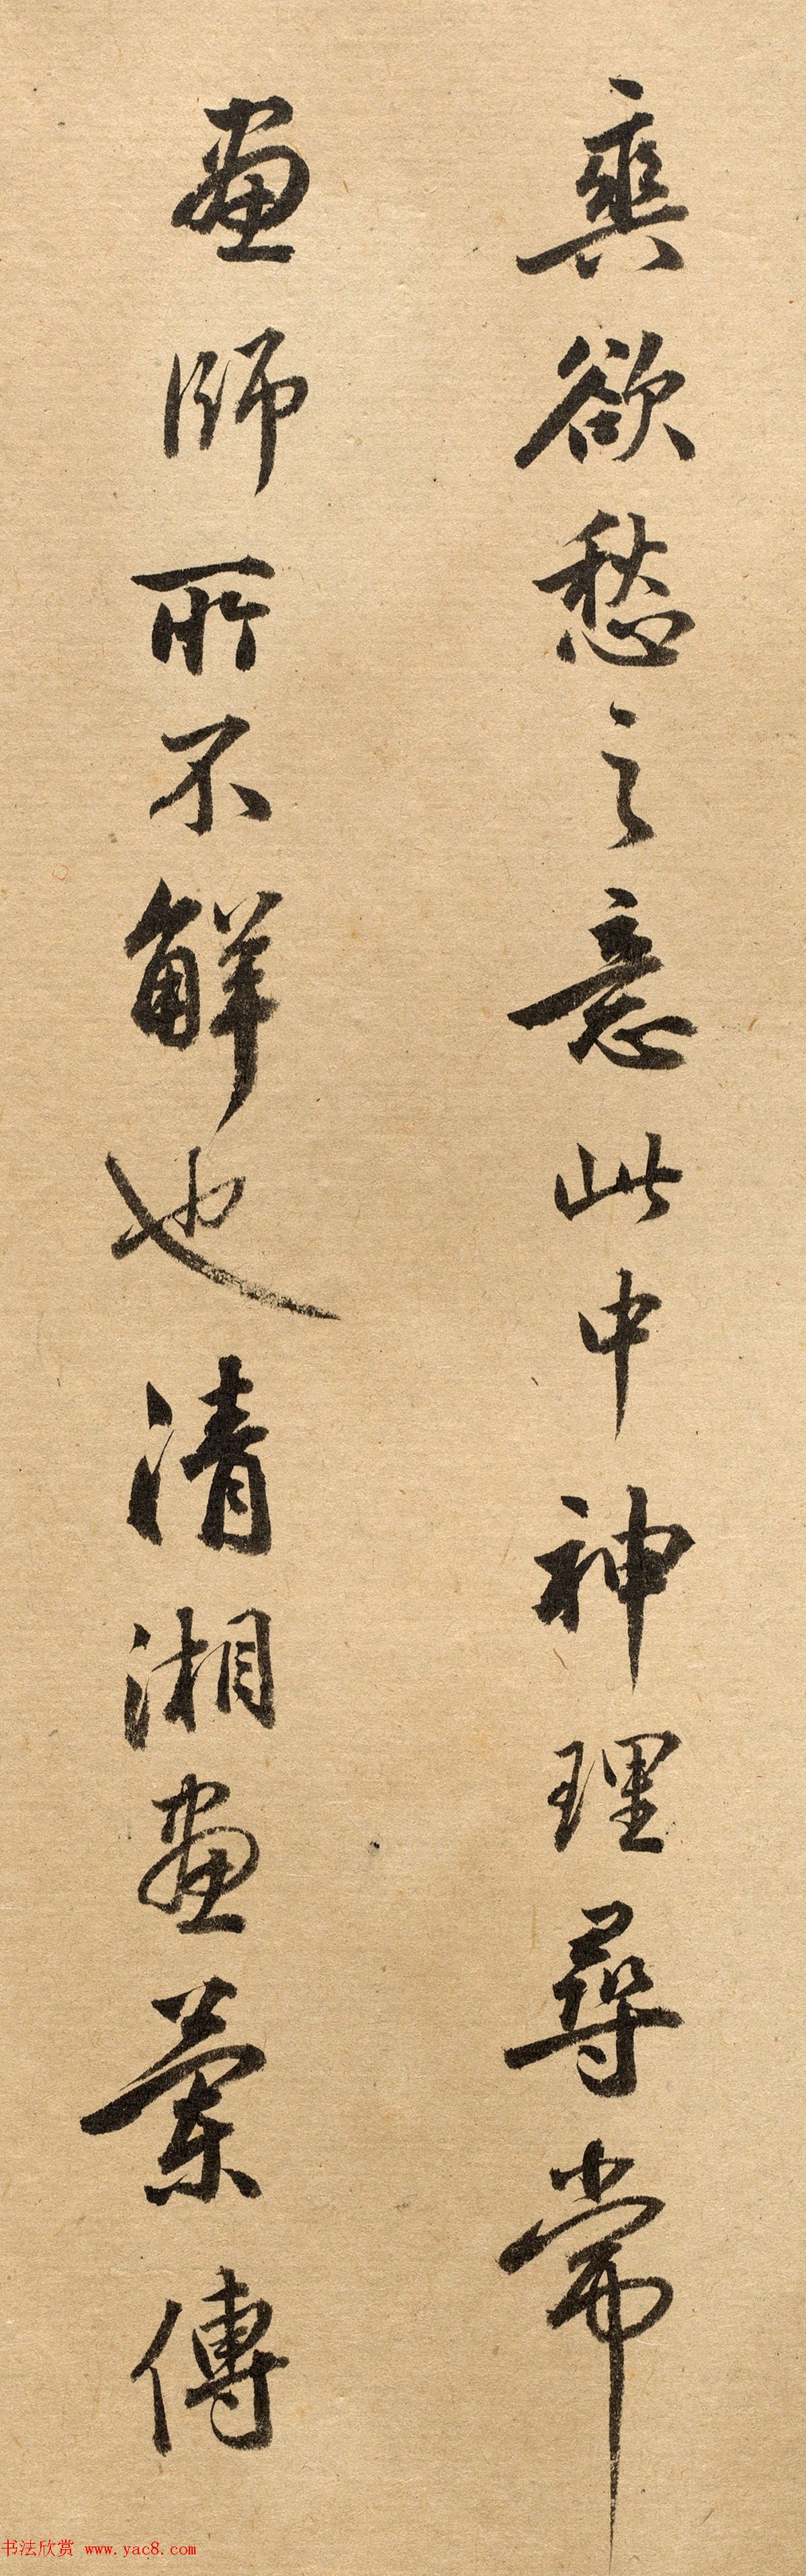 欲愁之意此中神理尋常
畫師所不解也清湘畫蘭傳
书法欣赏 www.yac8.com